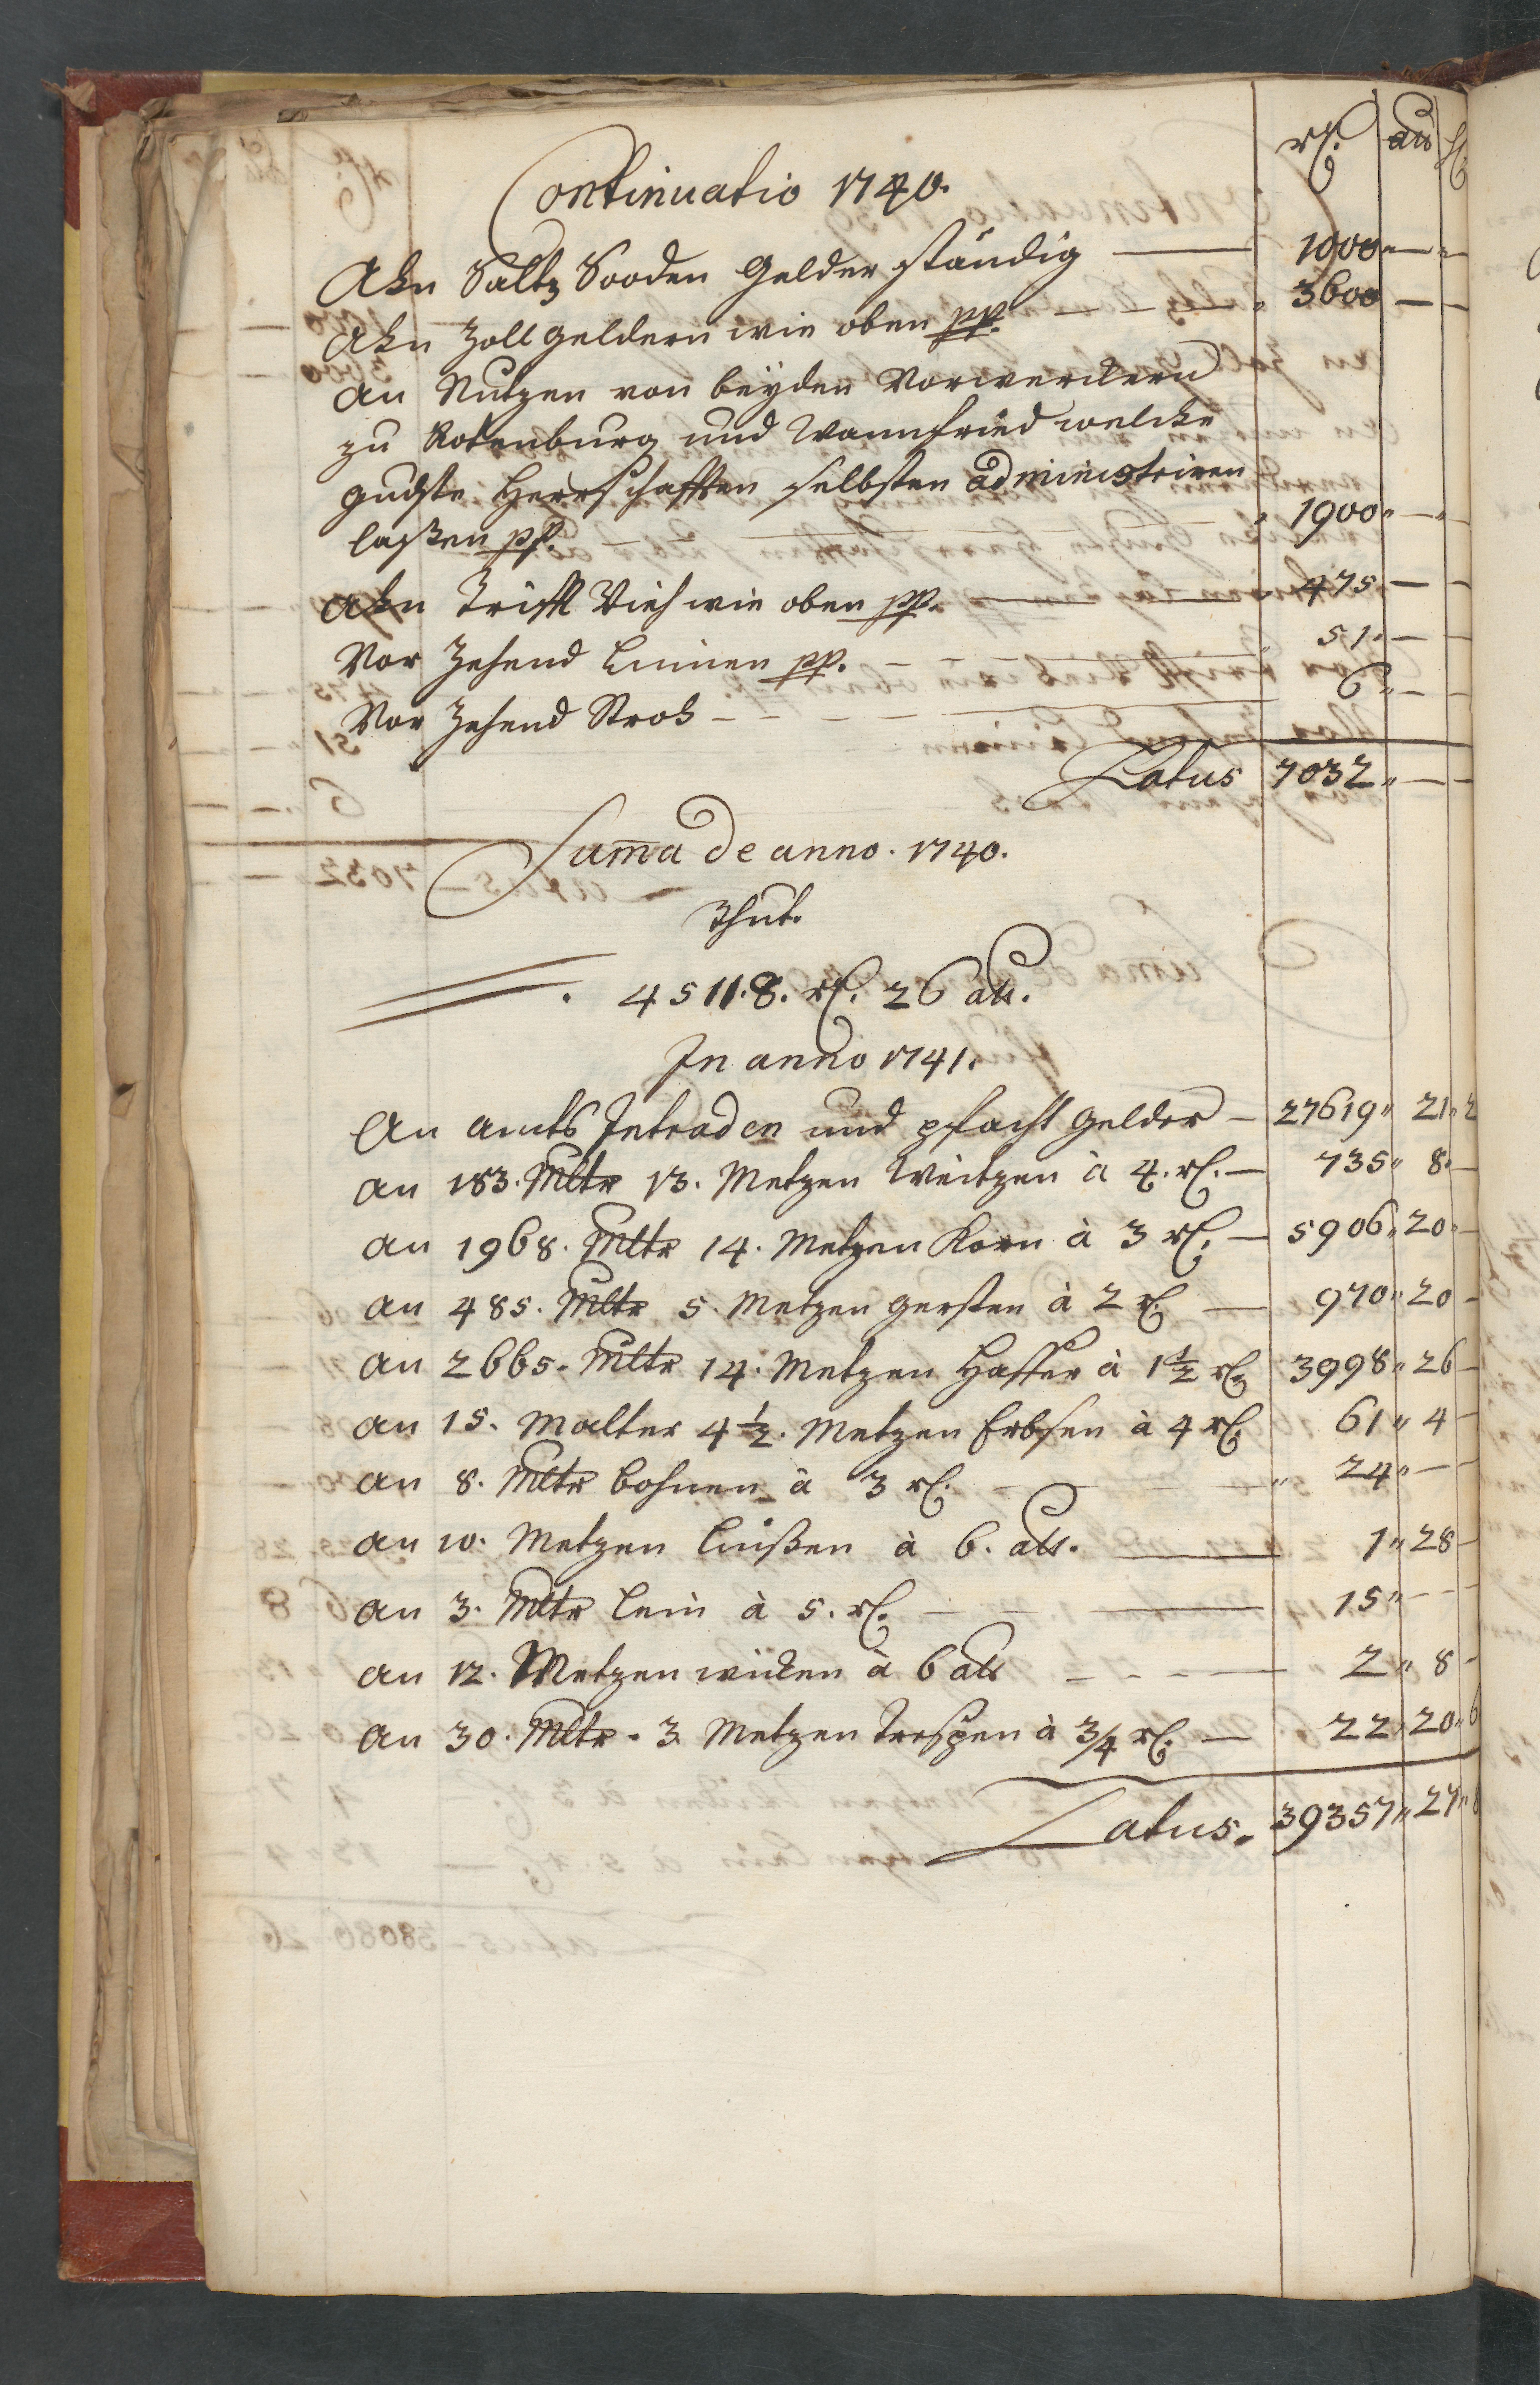 rl. alb hl
Continuatio 1740.
Ahn Saltz Sooden Gelder ständig — 1000 — —
Ahn Zoll geldern wie oben pp. — — — 3600 — —
An Nutzen von beyden Vorwerckern
zu Rotenburg und Wannfried welche
gndste Herrschafften selbsten administriren
laßen pp. 1900 — —
Ahn Trifft Vieh wie oben pp. — — 475 — —
Vor Zehend Linnen pp. — — — 51 — —
Vor Zehend Stroh — — — — 6 — —
Latus 7032 — —
Summa de anno 1740.
thut.
45118. rl. 26 alb.
In anno 1741.
An Amts Intraden und pfacht gelder — 27619 21 2
An 183. Mltr 13. Metzen Weitzen à 4. rl. — 735 8 —
An 1968. Mltr 14. Metzen Korn à 3 rl. — 5906 20 —
An 485. Mltr 5. Metzen Gersten à 2 rl. — 970 20 —
An 2665. Mltr 14. Metzen Haffer à 1½ rl. 3998 26 —
An 15. Malter 4½. Metzen Erbsen à 4 rl. 61 4 —
An 8. Mltr Bohnen à 3 rl. — — — 24 — —
An 10. Metzen Linßen à 6. alb. — 1 28 —
An 3. Mltr Lein à 5. rl. — — — 15 — —
An 12. Metzen wicken à 6 alb — — — — 2 8 —
An 30. Mltr. 3. Metzen Trespen à 3/4 rl. — 22 20 6
Latus. 39357 27 8